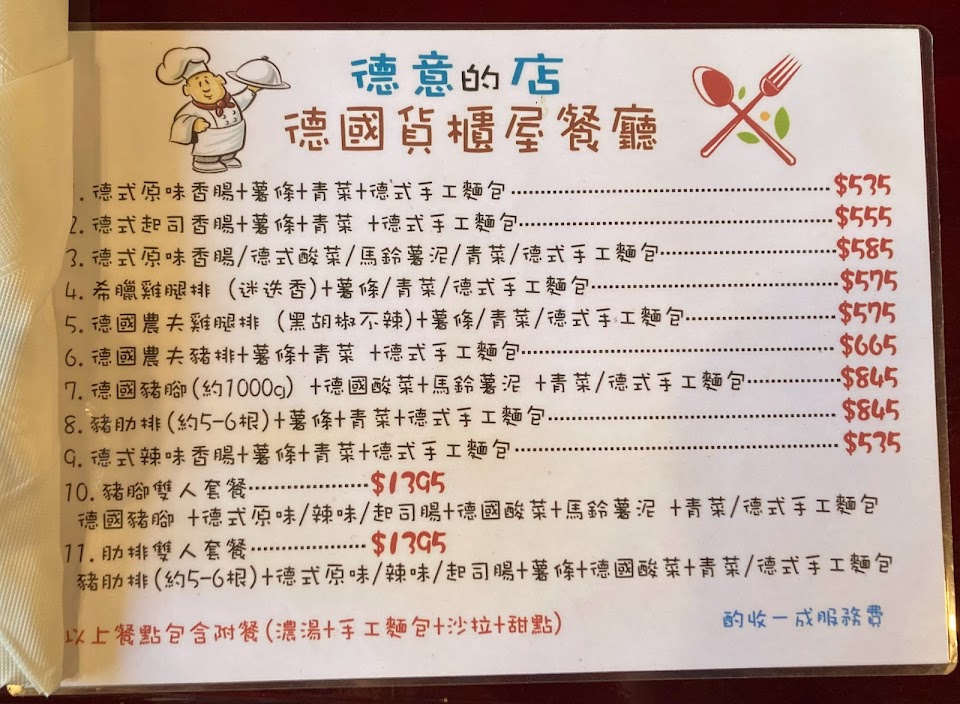 德意的店
德國貨櫃屋餐廳
1. 德式原味香腸+薯條+青菜+德式手工麵包 $535
2. 德式起司香腸+薯條+青菜 +德式手工麵包 $555
3. 德式原味香腸/德式酸菜/馬鈴薯泥/青菜/德式手工麵包 $585
4. 希臘雞腿排 (迷迭香)+薯條/青菜/德式手工麵包 $575
5. 德國農夫雞腿排 (黑胡椒不辣)+薯條/青菜/德式手工麵包 $575
6. 德國農夫豬排+薯條+青菜 +德式手工麵包 $665
7. 德國豬腳(約1000g) +德國酸菜+馬鈴薯泥 +青菜/德式手工麵包 $845
8. 豬肋排(約5-6根)+薯條+青菜+德式手工麵包 $845
9. 德式辣味香腸+薯條+青菜+德式手工麵包 $535
10. 豬腳雙人套餐 $1395
德國豬腳 +德式原味/辣味/起司腸+德國酸菜+馬鈴薯泥 +青菜/德式手工麵包
11. 肋排雙人套餐 $1395
豬肋排(約5-6根)+德式原味/辣味/起司腸+薯條+德國酸菜+青菜/德式手工麵包
以上餐點包含附餐(濃湯+手工麵包+沙拉+甜點)
酌收一成服務費